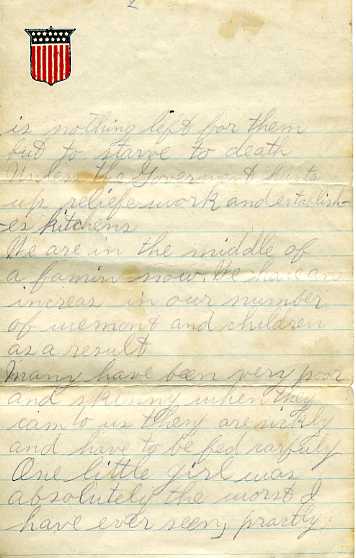 2
is nothing left for them
but to starve to death
Unless the Goverment hurts
up reliefe work and establish-
es kitchens
We are in the middle of
a famin now. We have an
increas in our number
of wemont and children
as a result
Many have been very poor
and skenny when they
cam to us they are sikly
and have to be fed carfuly
One little girl was
absolutely the worst I
have ever seen, practly